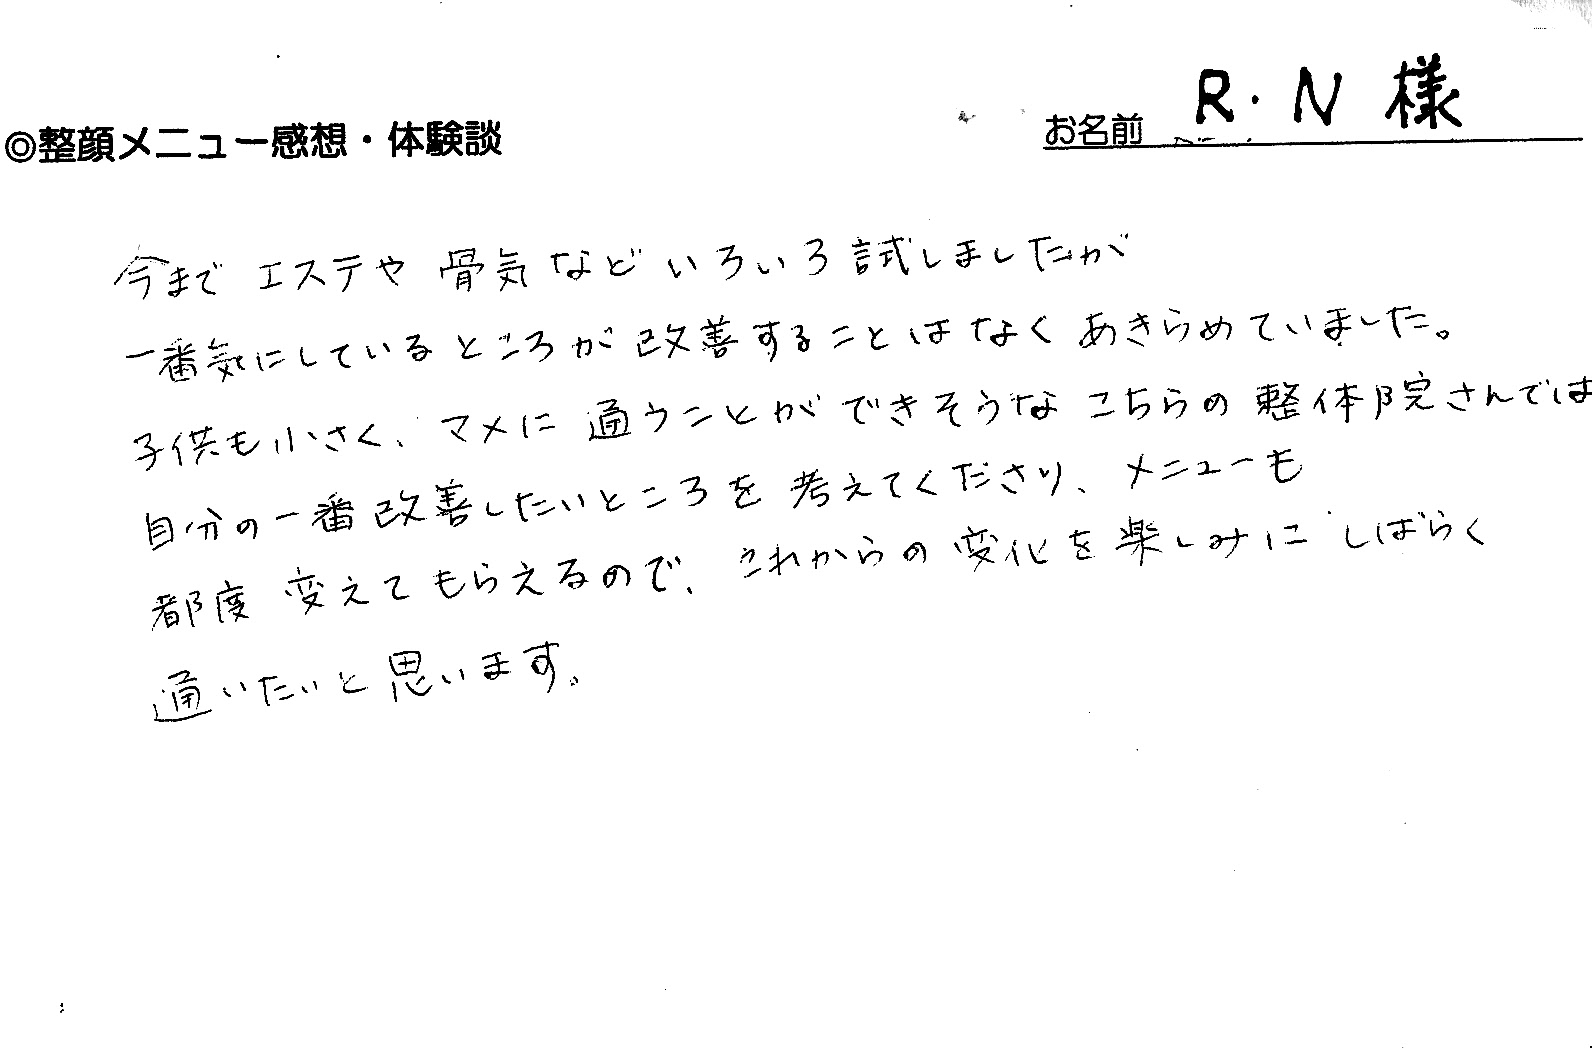 ◎整顔メニュー感想・体験談
お名前 R・N 様
今まで エステや 骨気 など いろいろ 試しましたが
一番気にしているところが 改善することはなく あきらめていました。
子供も小さく、マメに 通うことができそうな こちらの 整体院さんでは
自分の一番改善したいところを 考えてくださり、メニューも
都度 変えてもらえるので、これからの 変化を楽しみに しばらく
通いたいと思います。